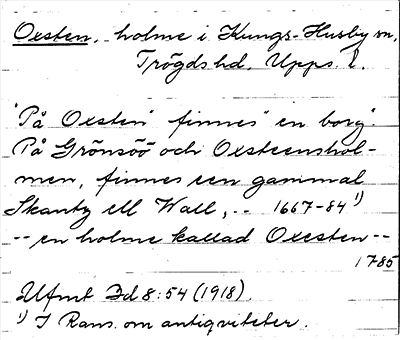 Oxsten, holme i Kungs-Husby sn,
Trögds hd, Upps. l.
"På Oxsten" finnes "en borg".
På Grönsöö och Oxsteenshol-
men, finnes een gammal
Skantz ell Wall, .. 1667-84 1)
-- en holme kallad Oxesten --
1785
Ufmt Dd 8:54 (1918).
1) I Rans. om antiqviteter.